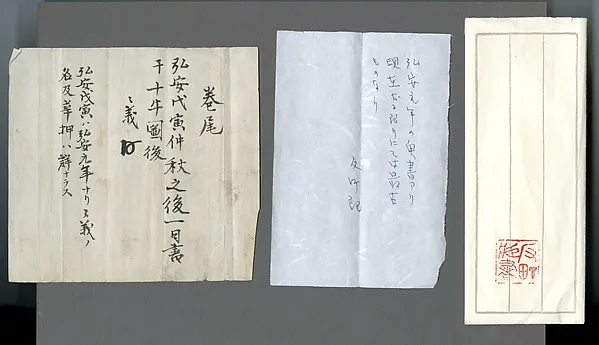 巻尾
弘安戊寅仲秋之後一日書
于十牛圖後
〻義
弘安戊寅ハ弘安元年ナリ〻義ノ
名及華押ハ詳ナラス
弘安元年の奥書アリ
現在する限りにては最古
ものなり
反町記
反町